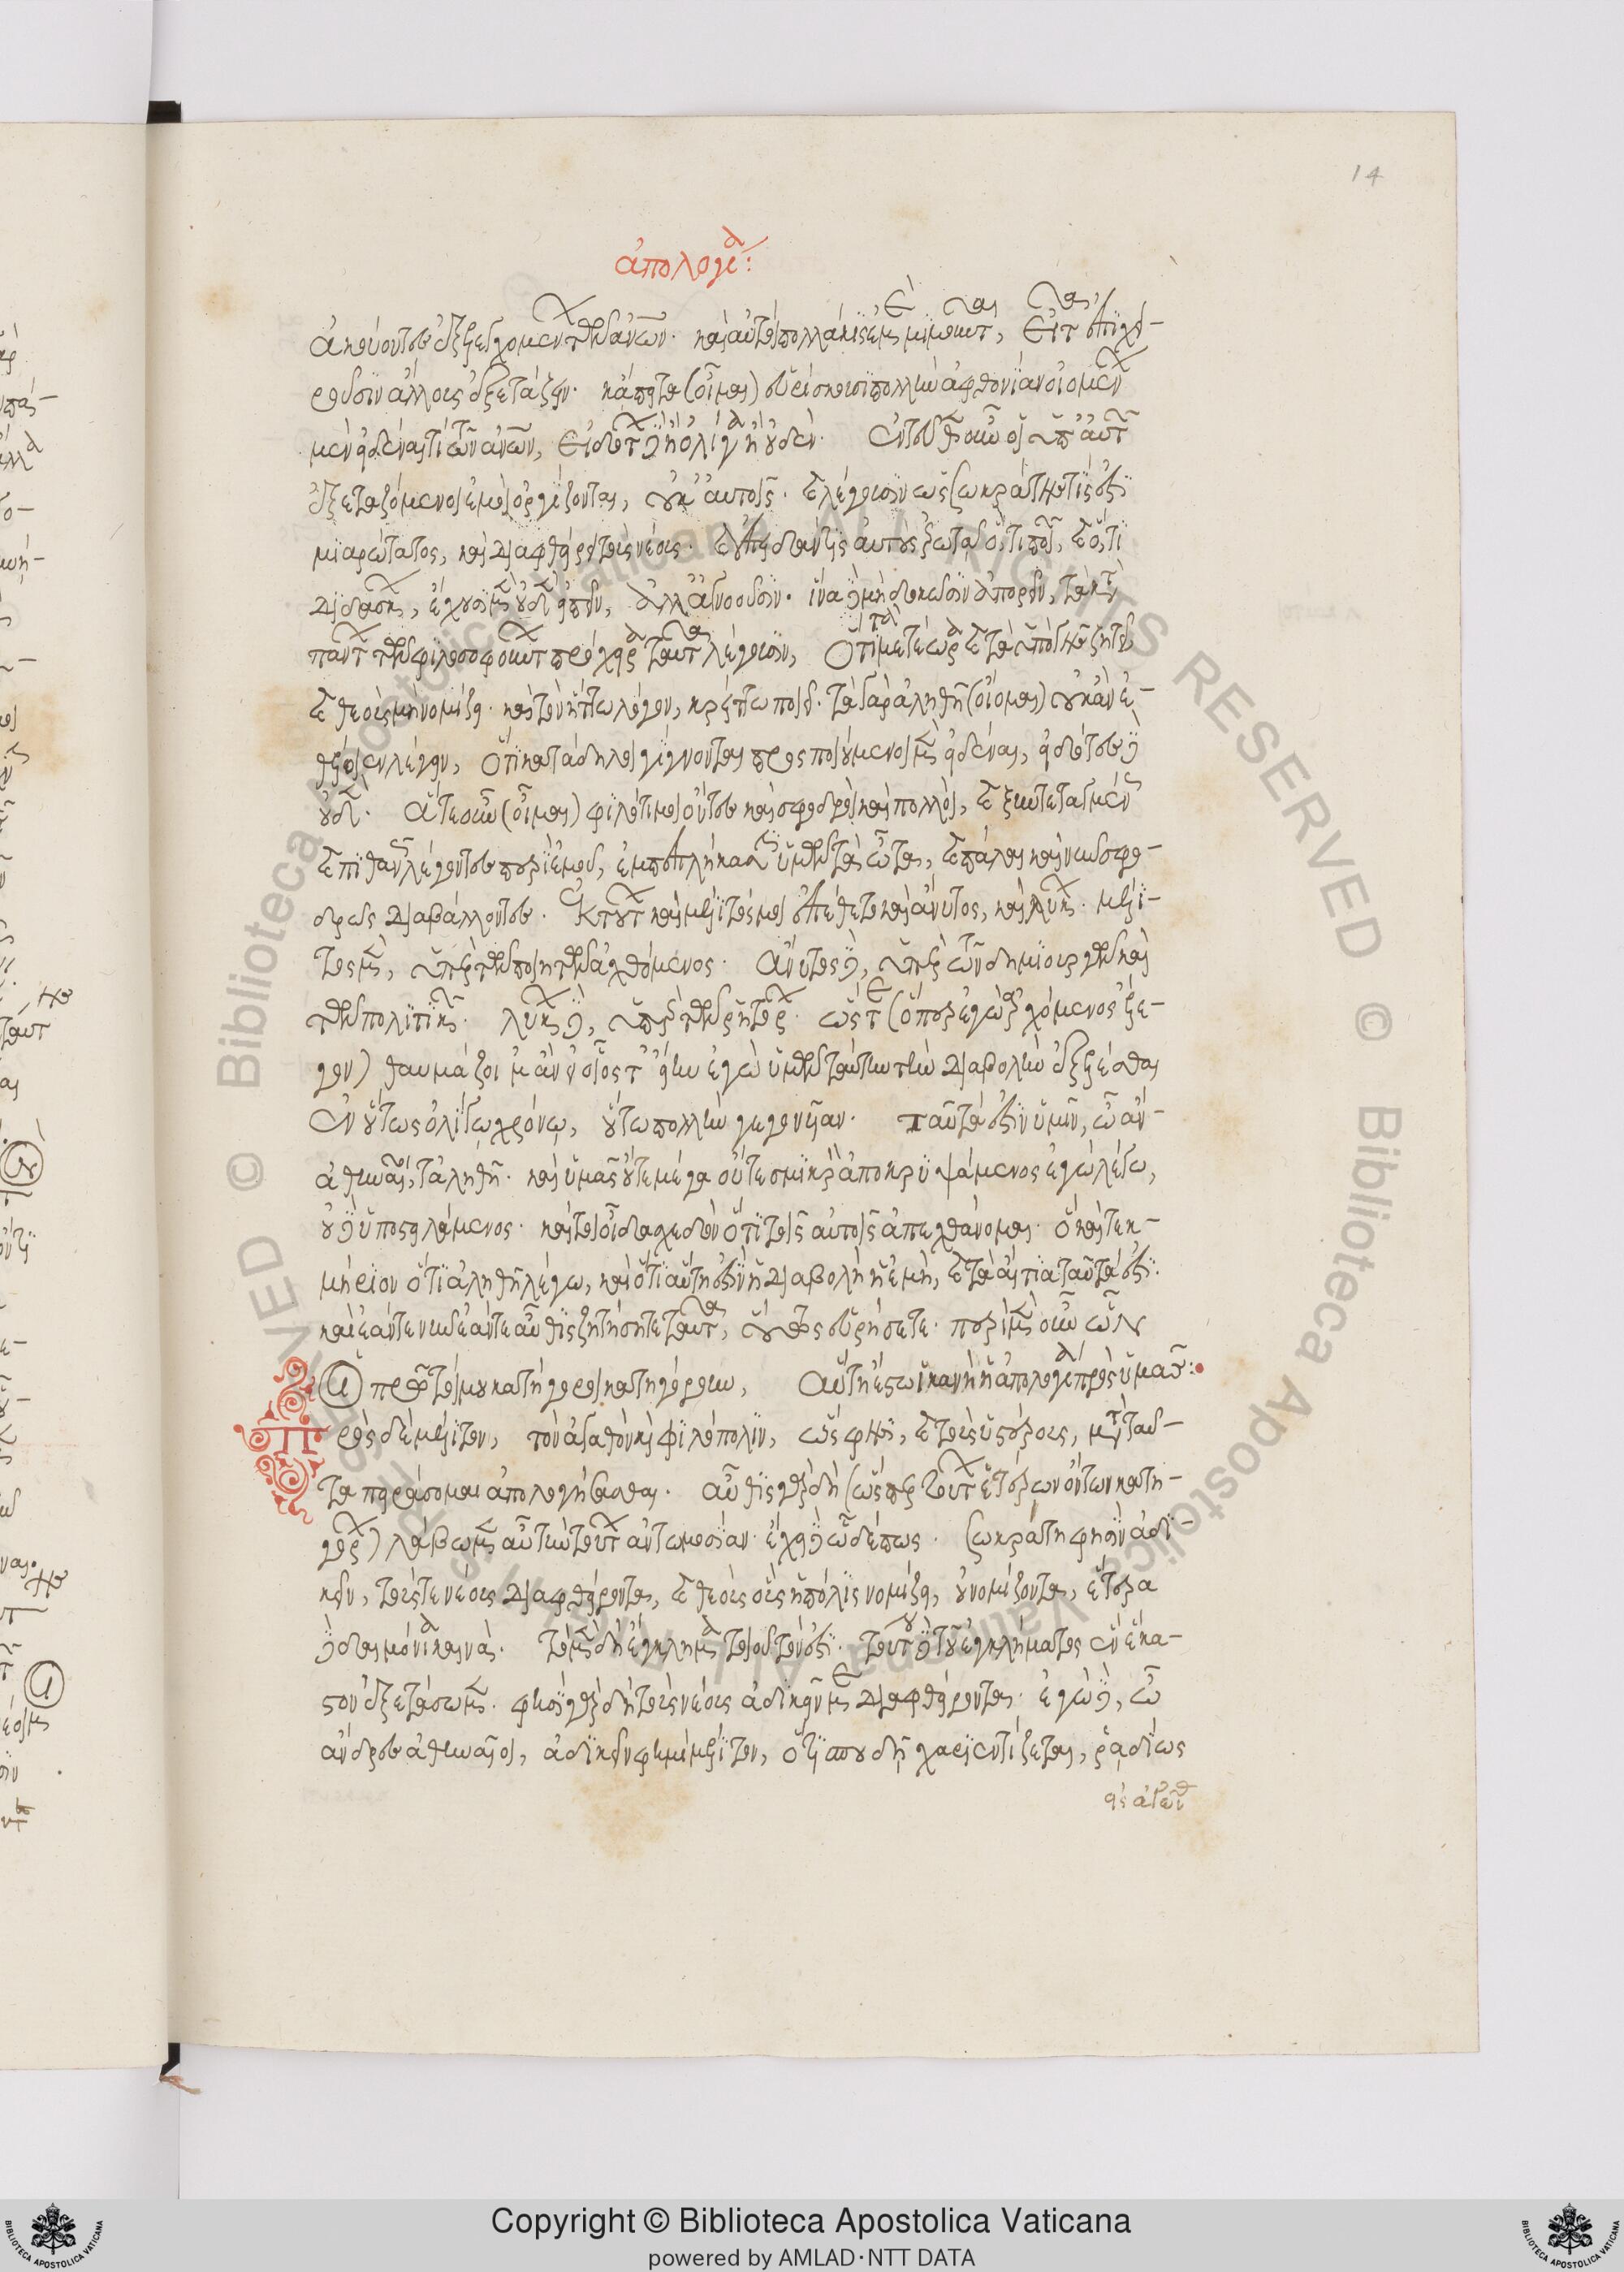 14
ἀπολογία:
ἀκούοντες ἐξεταζομένων τῶν ἀνθρώπων· καὶ αὐτοὶ πολλάκις ἐμὲ μιμοῦνται, εἶτα ἐπιχει-
ροῦσιν ἄλλους ἐξετάζειν· κἄπειτα (οἶμαι) εὑρίσκουσι πολλὴν ἀφθονίαν οἰομένων
μὲν εἰδέναι τι ὧν ἀνθρώπων, εἰδότων δὲ ἢ ὀλίγα ἢ οὐδέν· ἐντεῦθεν οὖν οἱ ὑπ' αὐτῶν
ἐξεταζόμενοι ἐμοὶ ὀργίζονται, οὐκ αὐτοῖς· καὶ λέγουσιν ὡς σωκράτης τίς ἐστι
μιαρώτατος, καὶ διαφθείρει τοὺς νέους· καὶ ἐπειδάν τις αὐτοὺς ἐρωτᾷ ὅ, τι ποιῶν, καὶ ὅ, τι
διδάσκων, ἔχουσι μὲν οὐδὲν εἰπεῖν, ἀλλ' ἀγνοοῦσιν· ἵνα δὲ μὴ δοκῶσιν ἀπορεῖν, τὰ κατὰ
πάντων τῶν φιλοσοφούντων πρόχειρα ταῦτα λέγουσιν, ὅτι τὰ μετέωρα καὶ τὰ ὑπὸ γῆς ζητεῖν
καὶ θεοὺς μὴ νομίζειν· καὶ τὸν ἥττω λόγον, κρείττω ποιεῖν· τὰ γὰρ ἀληθῆ (οἴομαι) οὐκ ἂν ἐ-
θέλοιεν λέγειν, ὅτι κατάδηλοι γίγνονται προσποιούμενοι μὲν εἰδέναι, εἰδότες δὲ
οὐδέν· ἅτε οὖν (οἶμαι) φιλότιμοι ὄντες καὶ σφοδροὶ καὶ πολλοί, καὶ ξυντεταγμένως
καὶ πιθανῶς λέγοντες περὶ ἐμοῦ, ἐμπεπλήκασιν ὑμῶν τὰ ὦτα, καὶ πάλαι καὶ νῦν σφο-
δρῶς διαβάλλοντες· ἐκ τούτων καὶ μέλιτός μοι ἐπέθετο καὶ ἄνυτος, καὶ λύκων· μέλι-
τος μὲν, ὑπὲρ τῶν ποιητῶν ἀχθόμενος· ἄνυτος δὲ, ὑπὲρ τῶν δημιουργῶν καὶ
τῶν πολιτικῶν· λύκων δὲ, ὑπὲρ τῶν ῥητόρων· ὥστε (ὅπερ ἐγὼ ἀρχόμενος ἔλε-
γον) θαυμάζοιμ' ἂν εἰ οἷός τ' εἴην ἐγὼ ὑμῶν ταύτην τὴν διαβολὴν ἐξελέσθαι
ἐν οὕτως ὀλίγῳ χρόνῳ, οὕτω πολλὴν γεγονυῖαν· ταῦτά ἐστιν ὑμῖν, ὦ ἄν-
ἀθηναῖοι, τἀληθῆ· καὶ ὑμᾶς οὔτε μέγα οὔτε σμικρὸν ἀποκρυψάμενος ἐγὼ λέγω,
οὐδ' ὑποστειλάμενος· καίτοι οἶδα σχεδὸν ὅτι τοῖς αὐτοῖς ἀπεχθάνομαι· ὃ καὶ τεκ-
μήριον ὅτι ἀληθῆ λέγω, καὶ ὅτι αὕτη ἐστὶν ἡ διαβολὴ ἡ ἐμὴ, καὶ τὰ αἴτια ταῦτά ἐστι·
καὶ ἐάν τε νῦν ἐάν τε αὖθις ζητήσητε ταῦτα, οὕτως εὑρήσετε· περὶ μὲν οὖν ὧν
οἱ πρῶτοί μου κατήγοροι κατηγόρουν, αὕτη ἔστω ἱκανὴ ἡ ἀπολογία πρὸς ὑμᾶς:
Πρὸς δὲ μέλιτον, τὸν ἀγαθὸν καὶ φιλόπολιν, ὥς φησι, καὶ τοὺς ὑστέρους, μετὰ ταῦ-
τα πειράσομαι ἀπολογήσασθαι· αὖθις γὰρ δὴ (ὥσπερ τούτων ἑτέρων ὄντων κατη-
γόρων) λάβωμεν αὖ τὴν τούτων ἀντωμοσίαν· ἔχει δὲ ὧδέ πως· σωκράτη φησὶν ἀδι-
κεῖν, τούς τε νέους διαφθείροντα, καὶ θεοὺς οὓς ἡ πόλις νομίζει, οὐ νομίζοντα, ἕτερα
δὲ δαιμόνια καινά· τὸ μὲν δὴ ἔγκλημα τοιοῦτόν ἐστι· τούτου δὲ τοῦ ἐγκλήματος ἓν ἕκα-
στον ἐξετάσωμεν· φησὶ γὰρ δὴ τοὺς νέους ἀδικεῖν με διαφθείροντα· ἐγὼ δὲ, ὦ
ἄνδρες ἀθηναῖοι, ἀδικεῖν φημὶ μέλιτον, ὅτι σπουδῇ χαριεντίζεται, ῥᾳδίως
εἰς ἀγῶνα